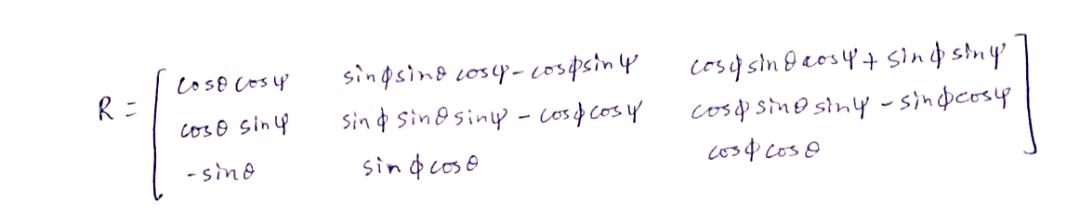 cosθ cosψ sinϕ sinθ cosψ - cosϕ sinψ cosϕ sinθ cosψ + sinϕ sinψ
R = cosθ sinψ sinϕ sinθ sinψ - cosϕ cosψ cosϕ sinθ sinψ - sinϕ cosψ
-sinθ sinϕ cosθ cosϕ cosθ